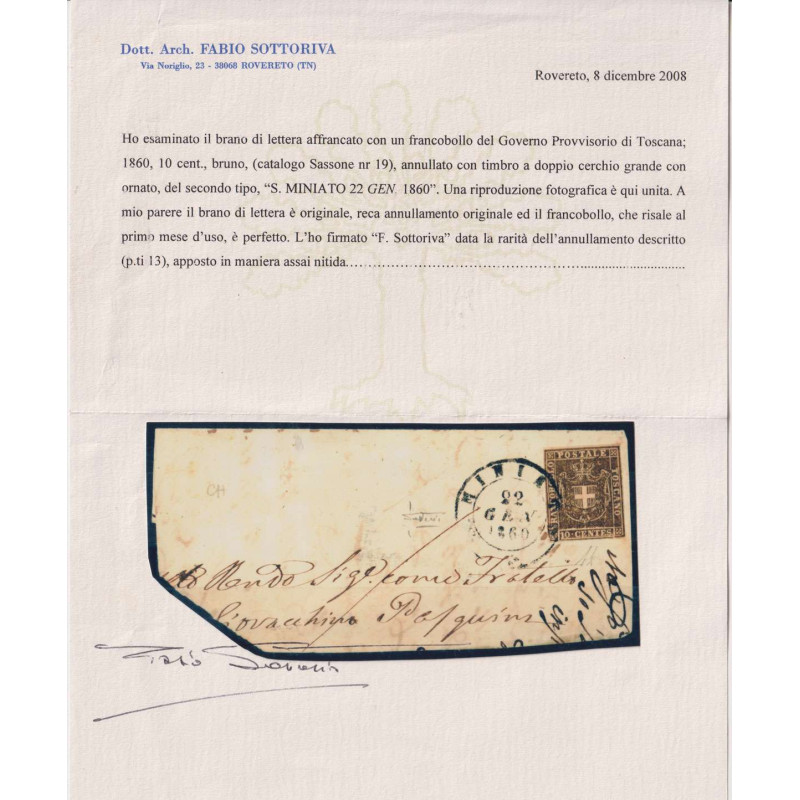 Dott. Arch. FABIO SOTTORIVA
Via Noriglio, 23 - 38068 ROVERETO (TN)
Rovereto, 8 dicembre 2008
Ho esaminato il brano di lettera affrancato con un francobollo del Governo Provvisorio di Toscana;
1860, 10 cent., bruno, (catalogo Sassone nr 19), annullato con timbro a doppio cerchio grande con
ornato, del secondo tipo, “S. MINIATO 22 GEN. 1860”. Una riproduzione fotografica è qui unita. A
mio parere il brano di lettera è originale, reca annullamento originale ed il francobollo, che risale al
primo mese d’uso, è perfetto. L’ho firmato “F. Sottoriva” data la rarità dell’annullamento descritto
(p.ti 13), apposto in maniera assai nitida.
POSTALE
TOSCANO
10 CENTES
MINIA
22
GEN
1860
CH
Sigr. come Fratello
Giovacchino Pasquini